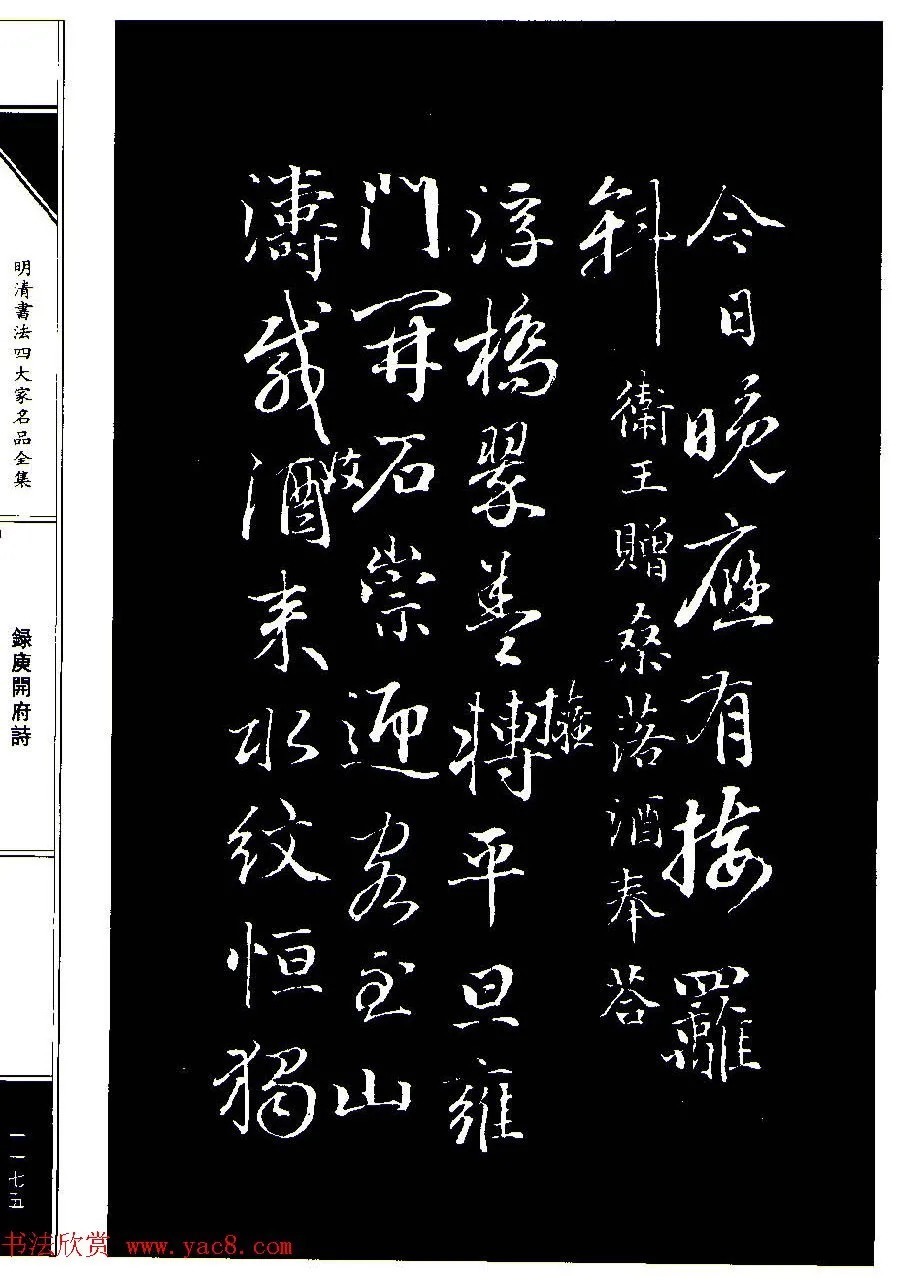 今日晚應有接䍦
斜
衛王贈桑落酒奉荅
浮橋翠蓋轉平旦雍
擁
門開石崇迎客至山
濤載酒来水紋恒獨
妓
明清書法四大家名品全集
録庾開府詩
一一七五
书法欣赏 www.yac8.com